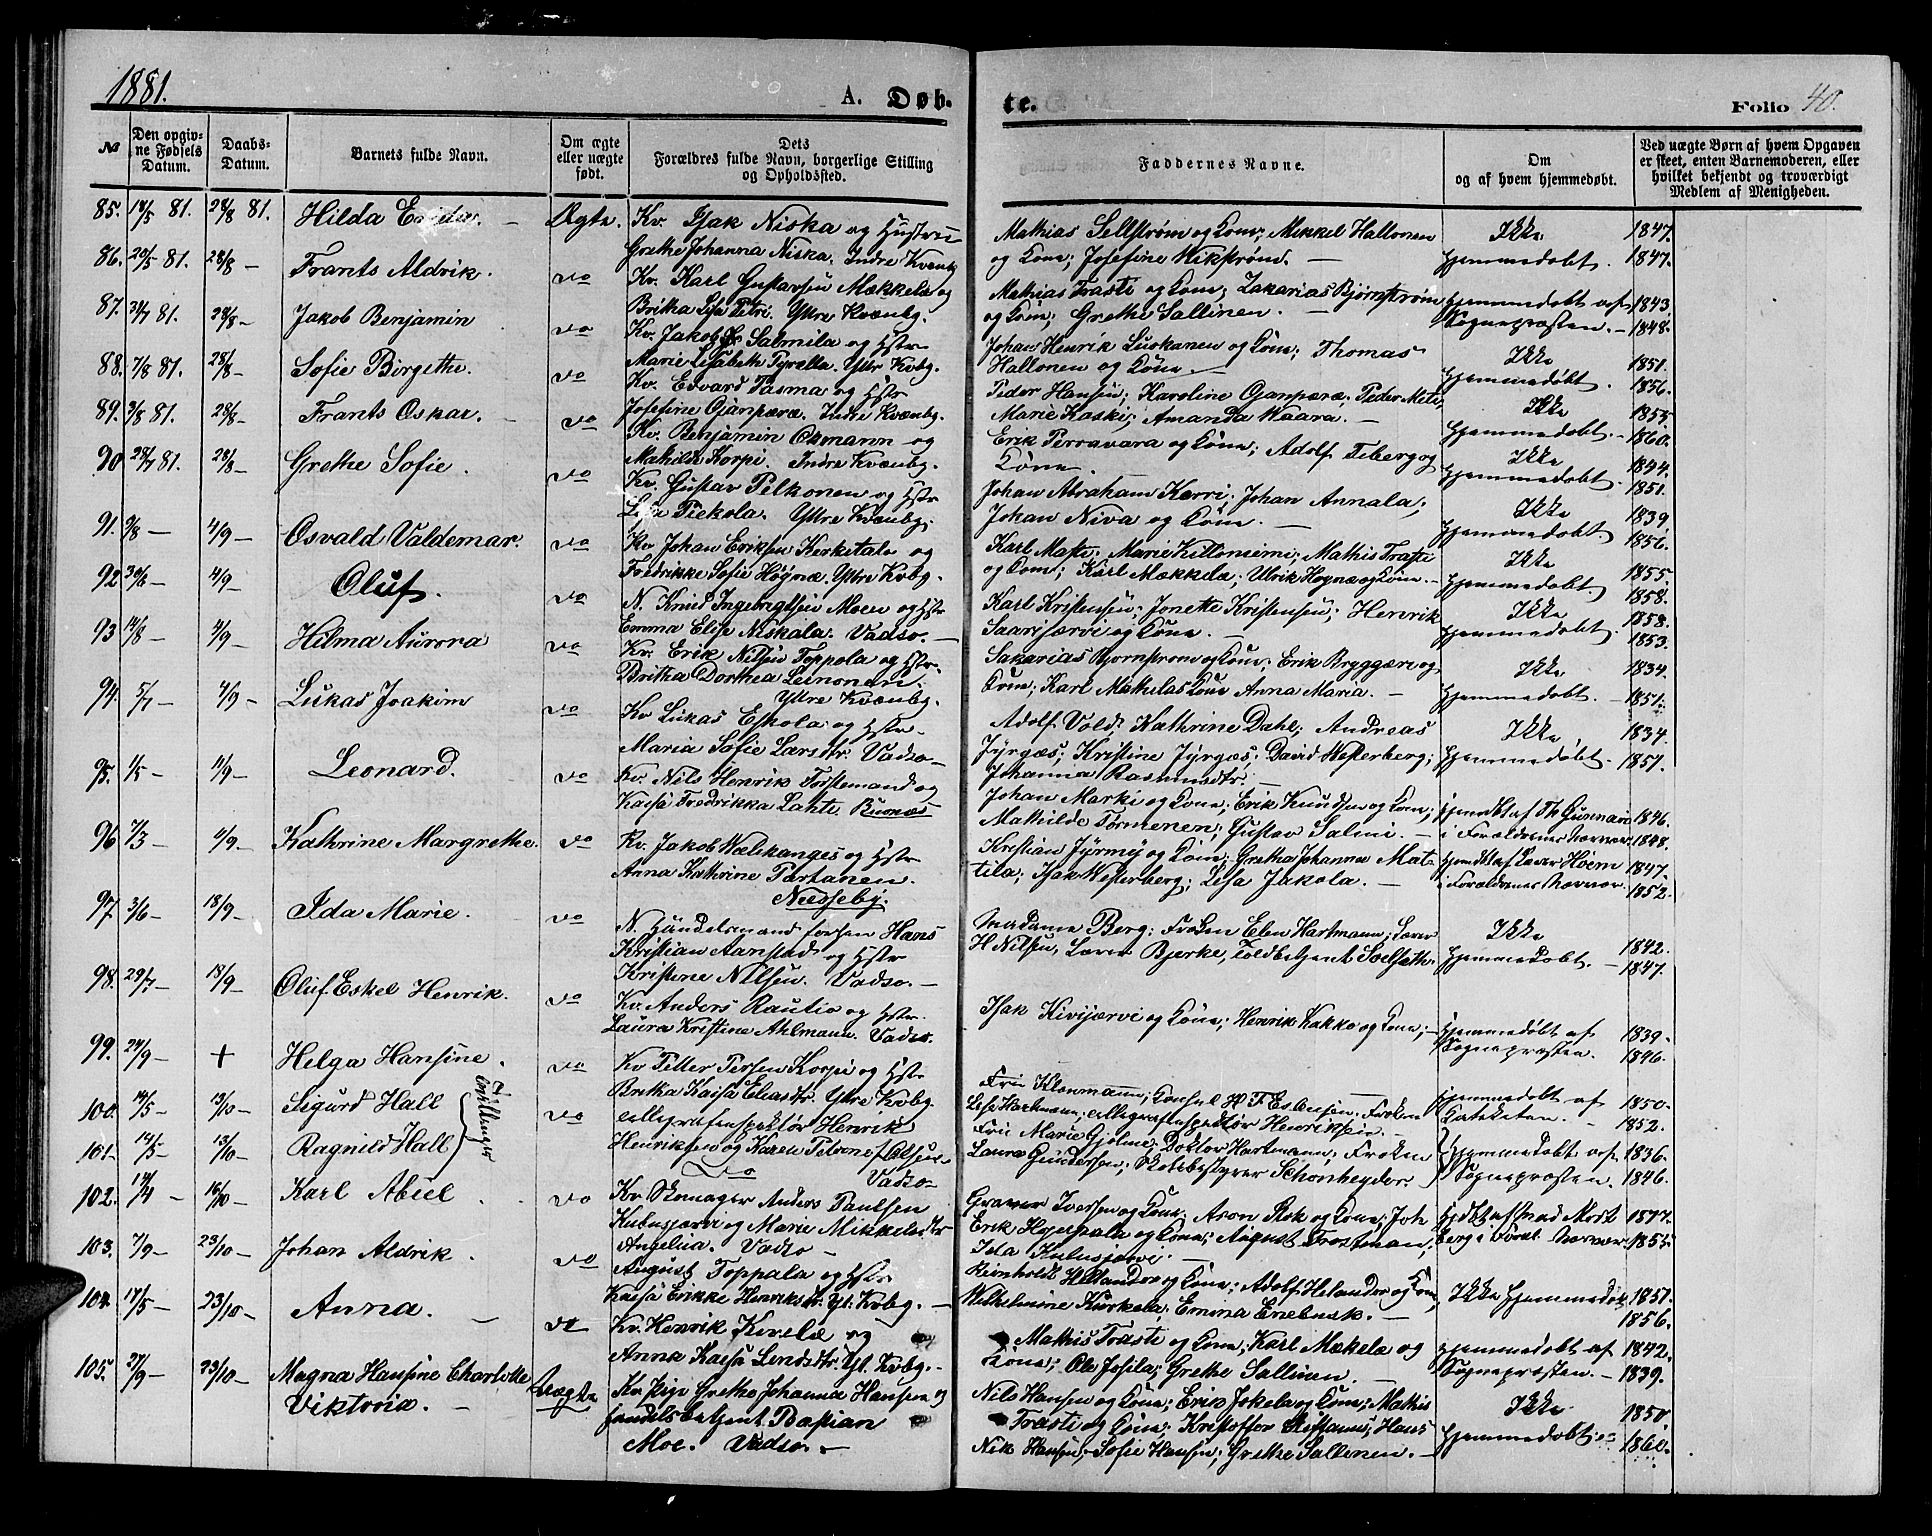 1881.
A. Døb-
te.
Folio 40.
№
Den opgiv-
ne Fødsels
Datum.
Daabs-
Datum.
Barnets fulde Navn.
Om ægte
eller uægte
født.
Dets
Forældres fulde Navn, borgerlige Stilling
og Opholdssted.
Faddernes Navne.
Om
og af hvem hjemmedøbt.
Ved uægte Børn af hvem Opgaven
er skeet, enten Barnemoderen, eller
hvilket bekjendt og troværdigt
Medlem af Menigheden.
85. 18/5 81. 28/8 81. Hilda Ægte. Kv. Isak Niska og Hustru
Grethe Johanna Niska. Indre Kvænbg
Mathias Sellstrøm og Kone; Mikkel Hallonen
og Kone; Josefine Wikstrøm. —
Ikke
hjemmedøbt.
1847.
1847.
86. 20/5 81. 28/8 — Frants Aldrik. do Kv. Karl Gustavsen Mækkelæ og
Britha Lisa Petri. Yttre Kvænbg.
Mathias Trasti og Kone; Zakarias Bjørnstrøm
og Kone; Grethe Sallinen. —
hjemmedøbt af
Sognepræsten. —
1843.
1848.
87. 81. 28/8 — Jakob Benjamin do Kv. Jakob Salmila og Hstr
Marie Lisabeth Pyrella. Yttr Kvbg.
Johan Henrik Luskanen og Kone; Thomas
Hallonen og Kone. —
Ikke
hjemmedøbt.
1851.
1856.
88. 7/8 81. 28/8 — Sofie Birgethe. do Kv. Edvard Pasma og Hstr
Josefine Ojanperæ. Indre Kvænbg.
Peder Hansen; Karoline Ojanperæ; Peder
Marie Kaski; Amanda Waara. —
Ikke
hjemmedøbt. —
1855
1860.
89. 3/8 81. 28/8 — Frants Oskar. — do Kv. Benjamin Osmann og
Mathilde Korpi. Indre Kvænbg.
Erik Perravara og Kone; Adolf Feberg og
Kone.
Ikke
hjemmedøbt.
1844
1851.
90 28/7 81. 28/8 — Grethe Sofie. do Kv. Gustav Pelkonen og Hstr
Lisa Piekola. Yttre Kvænbg.
Johan Abraham Karri; Johan Annala;
Johan Niva og Kone. —
Ikke
hjemmedøbt.
1839.
1856.
91. 9/8 — 4/9 — Osvald Valdemar. do Kv Johan Eriksen Kerketalo og
Fredrikke Sofie Høynæ. Yttre Kvbg.
Karl Maste; Marie Kittoniemi; Mathis Traste
og Kone; Karl Mækkelæ; Ulrik Høynæ og Kone. —
Ikke
hjemmedøbt.
1855.
1858.
92 30/6 — 4/9 — Oluf. do N. Knud Ingebrigtsen Moen og Hstr
Emma Elise Niskala. Vadsø. —
Karl Kristensen; Jonette Kristensen; Henrik
Saarijærvi og Kone. —
Ikke
hjemmedøbt.
1858.
1853.
93 14/8 4/9 — Hilma Aurora do Kv. Erik Nilsen Toppola og Hstr
Britha Dorthea Leinonen.
Yttre Kvænbg.
Sakarias Bjørnstrøm og Kone; Erik Bryggari og
Kone; Karl Mathilas Kone Anna Maria. —
Ikke
hjemmedøbt. —
1834.
1851.
94. 5/7 — 4/9 — Lukas Joakim do Kv Lukas Eskola og Hstr
Maria Sofie Larsdtr. Vadsø —
Adolf Vold; Kathrine Dahl; Andreas
Jyrgæs; Kristine Jyrgæs; David Westerberg;
Johanna Rasmusdtr —
Ikke
hjemmedøbt.
1834.
1857.
95. 1/5 — 11/9 — Leonard. do Kv. Nils Henrik Torstemand og
Kaisa Fredrikka Lahti. Bunæs
Johan Marki og Kone; Erik Knudsen og Kone;
Mathilde Tørmenen; Gustav Salmi. —
hjemdbt af Th. Gunnari
i Forældrenes Nærvær.
1846.
1848.
96 7/3 — 4/9 — Kathrine Margrethe. do Kv. Jakob Wælikanges og Hstr
Anna Kathrine Partanen.
Næsseby.
Kristian Jyrmøj og Kone; Gretha Johanna Mat-
tila; Isak Westerberg; Lisa Jakola. —
hjemdbt af Lærer Hoem
i Forældrenes Nærvær.
1847.
1852.
97. 3/6 — 18/9 — Ida Marie. do N. Handelsmand Hans
Kristian Aanstad og Hstr
Kristine Nilsen. Vadsø. —
Madame Berg; Frøken Ebn Hartmann; Lærer
H Nilsen, Lærer Bjerke, Toldbetjent Soelseth.
Ikke
hjemmedøbt. —
1842.
1847.
98. 29/7 — 18/9 — Oluf Eskel Henrik. do Kv. Anders Rautio og Hstr.
Laura Kristine Ahlmann. Vadsø.
Isak Kivijærvi og Kone; Henrik Kakko og Kone; —
hjemmedøbt af
Sognepræsten. —
1839.
1846.
99. 24/9 — + Helga Hansine. do Kv Petter Persen Korpi og Hstr
Bretha Kaisa Eliasdtr. Yttre Kvbg.
100. 14/5 — 13/10 — Sigurd Hall
Tvillinger
do Henrik
Henriksen og Karen Petrone f. Olsen —
Vadsø
Fru Klonmann; Konsul H. F. Esbensen; Frøken
Lisa Hartmann; Henriksen. —
hjemmedøbt af
Kateketen. —
1850.
1852.
101. 14/5 — 13/10 — Ragnild Hall do
Fru Marie Gjølme; Doktor Hartmann; Frøken
Laura Gundersen; Skolebestyrer Schønheyder.
hjemmedøbt af
Sognepræsten.
1836.
1846.
102. 14/4 — 16/10 — Karl Abiel do Kv. Skomager Anders Paulsen
Kuhusjærvi og Marie Mikkelsdtr
Angelica. Vadsø —
Graver Iversen og Kone; Aron Rok og Kone; Joh
Erik Hyepala og Kone; August Trostman;
Ida Kuhusjærvi. —
1877.
1855.
103. 7/9 — 23/10 — Johan Aldrik. do August Toppala og Hstr
Kaisa Erikke Henriksdtr. Yt. Kvbg. —
Reinholdt Hellander og Kone; Adolf Helander og Kone;
Wilhelmine Kurkela; Emma Enebusk. —
Ikke hjemmedøbt
1851.
1856.
104. 17/5 — 23/10 — Anna. — do Kv. Henrik Kivelæ og
Anna Kaisa Lindsdtr. Yt. Kvbg. —
Mathis Trasti og Kone; Karl Mækelæ og
Kone; Ole Josila; Grethe Sallinen. —
hjemmedøbt af
Sognepræsten. —
1842.
1839.
105. 27/9 — 23/10 — Magna Hansine Charlotte
Viktoria. — Uægte Kv. pige Grethe Johanna Hansen og
Handelsbetjent Bastian
Moe. Vadsø. —
Nils Hansen og Kone; Erik Jokela og Kone; Mathis
Trasti og Kone; Kristoffer Hans
Nik Hansen; Sofie Hansen; Grethe Sallinen. —
Ikke
hjemmedøbt
1850.
1860.